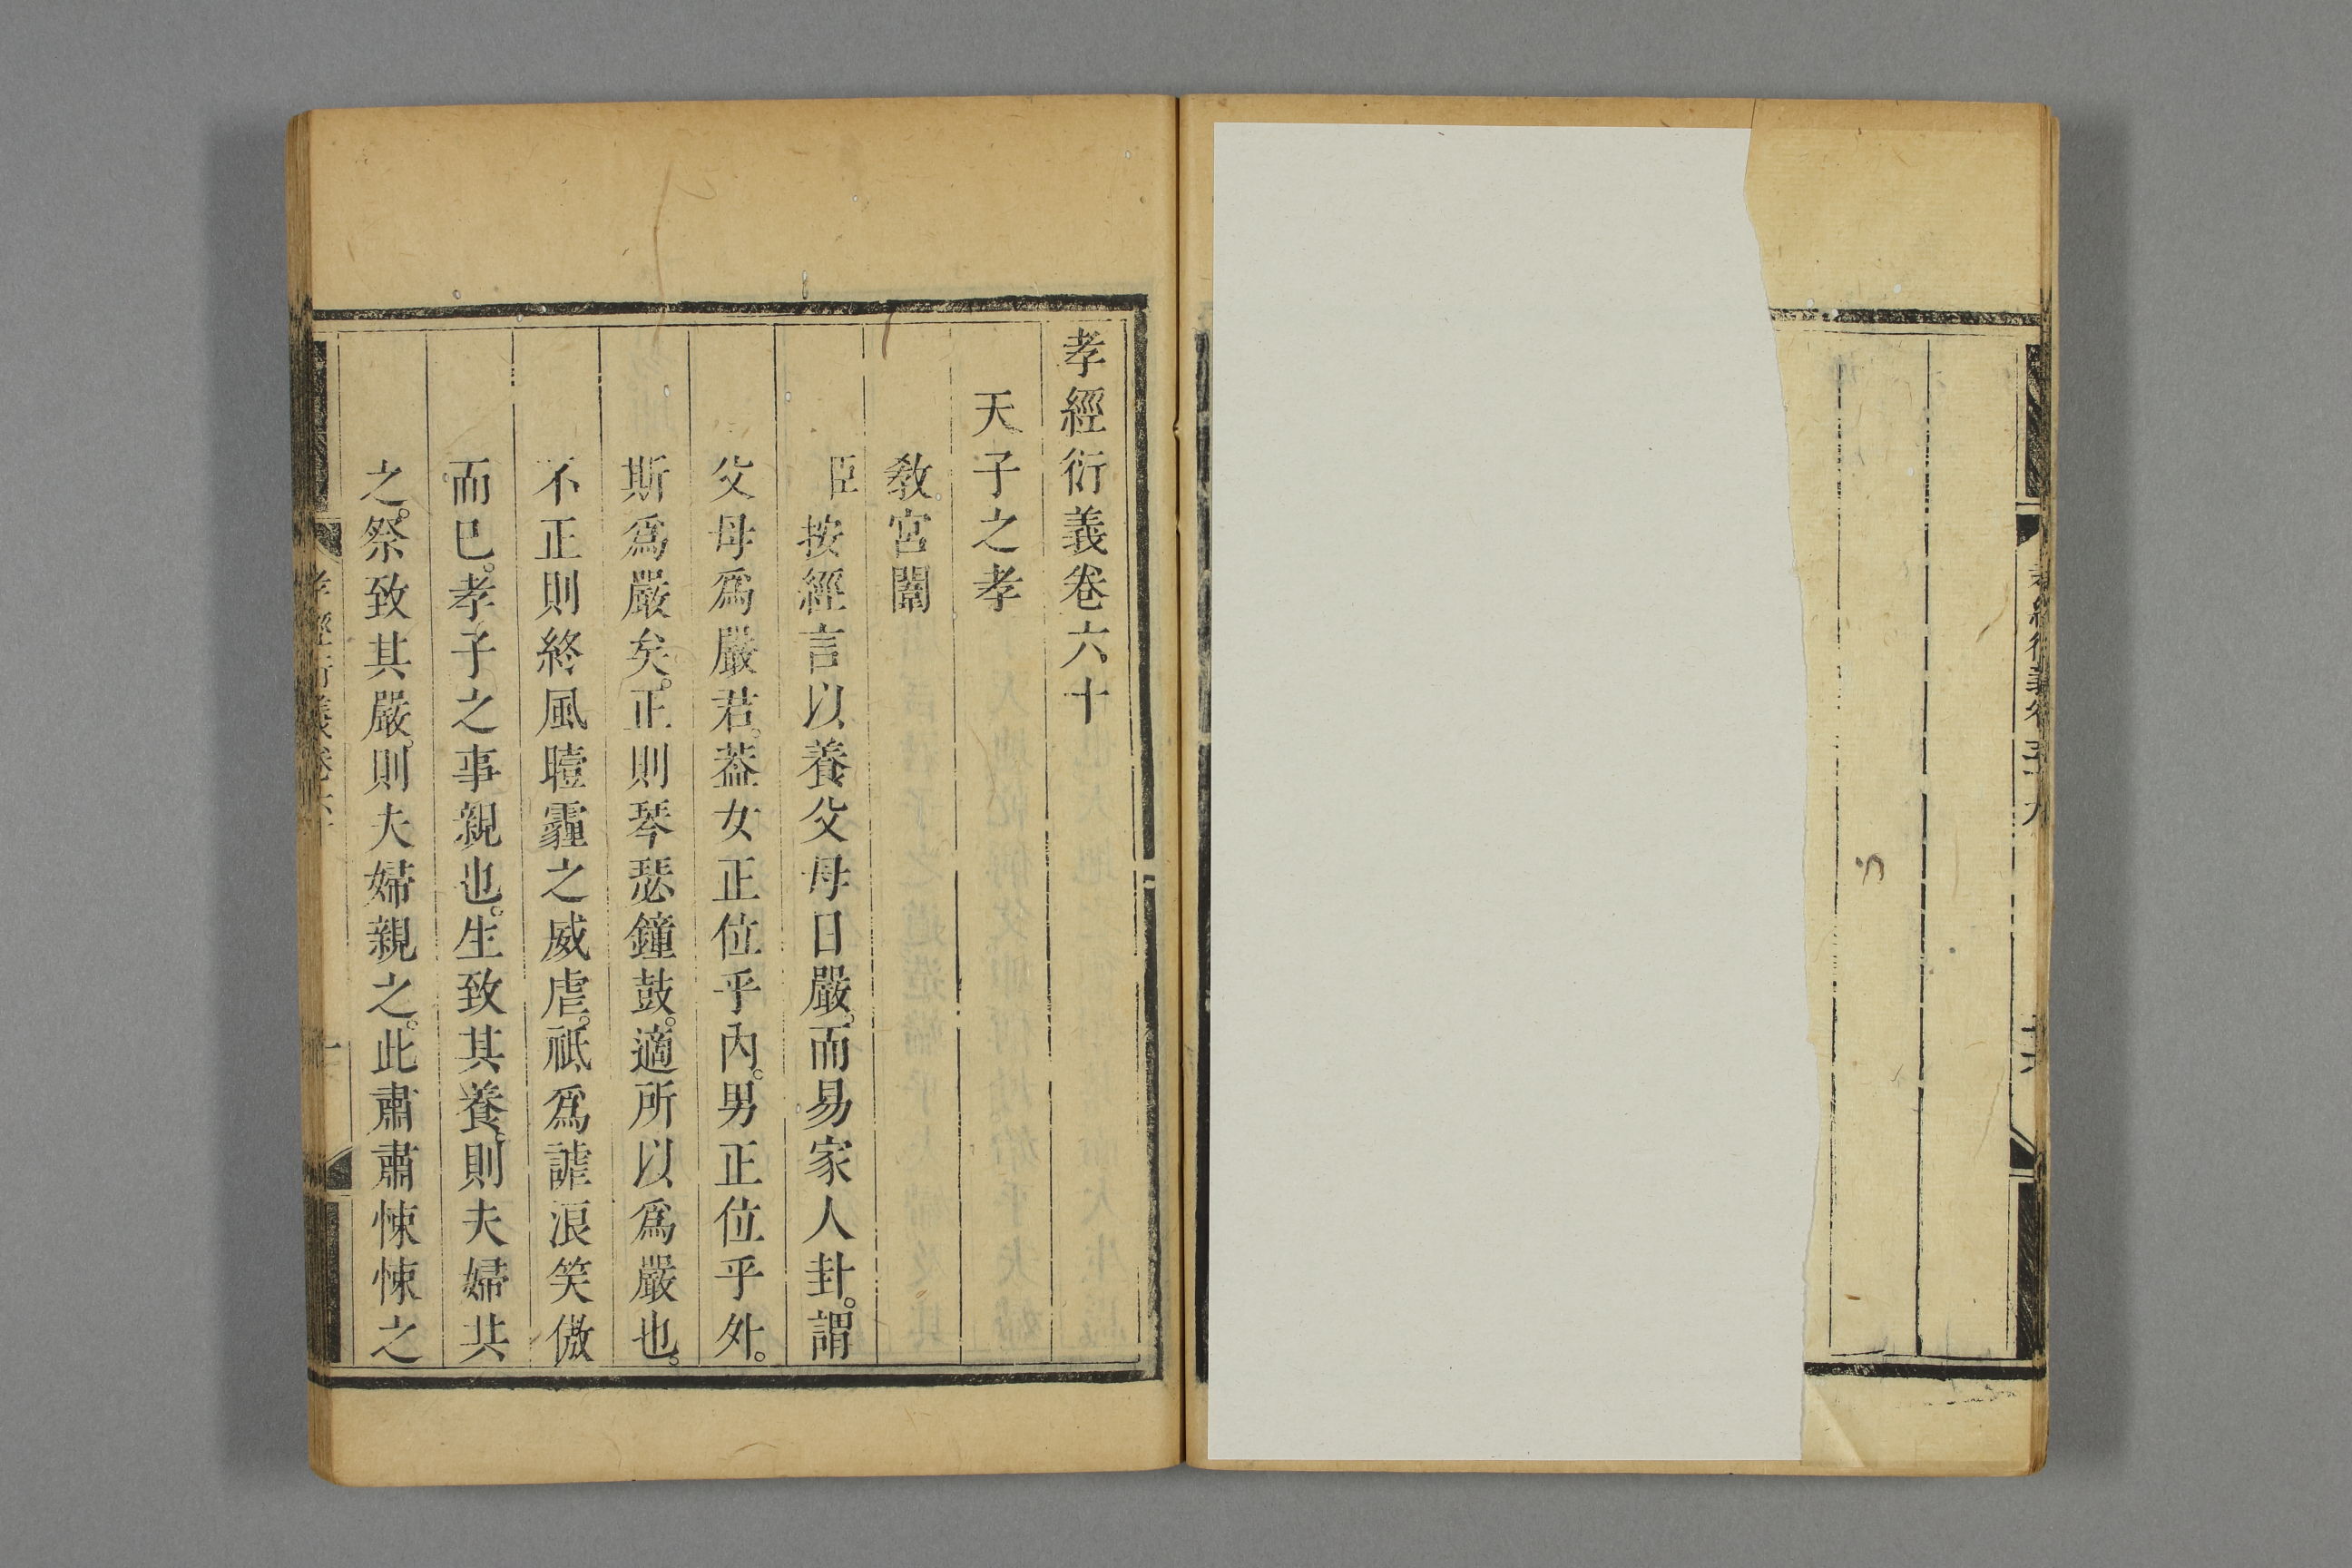 孝經衍義卷六十
天子之孝
敎宮闈
臣按經言以養父母日嚴。而易家人卦。謂
父母爲嚴君。葢女正位乎內。男正位乎外。
斯爲嚴矣。正則琴瑟鐘鼓。適所以爲嚴也。
不正則終風曀霾之威虐。祗爲謔浪笑傲
而已。孝子之事親也。生致其養。則夫婦共
之。祭致其嚴。則夫婦親之。此肅肅悚悚之